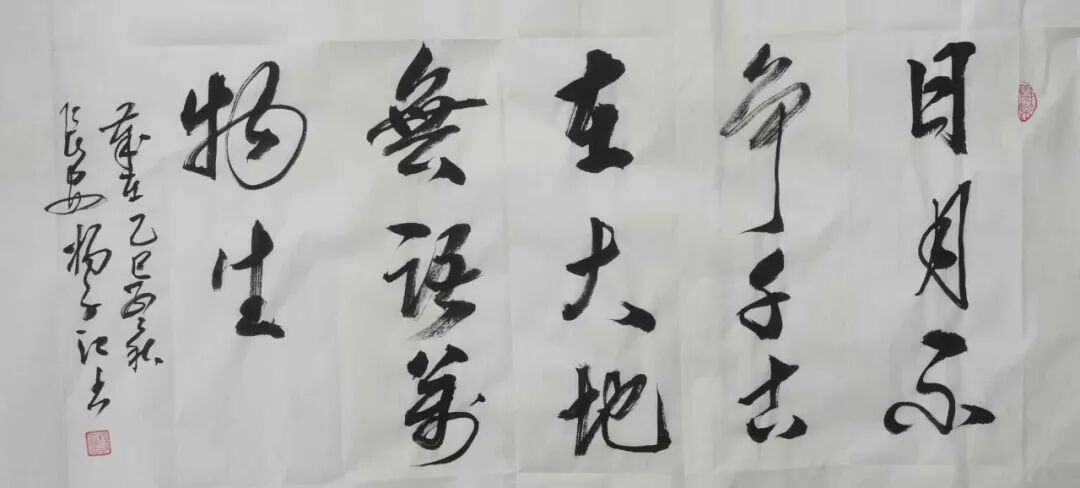 日月不
争千古
在大地
無語萬
物生
歲在乙巳秋
長安楊子江書